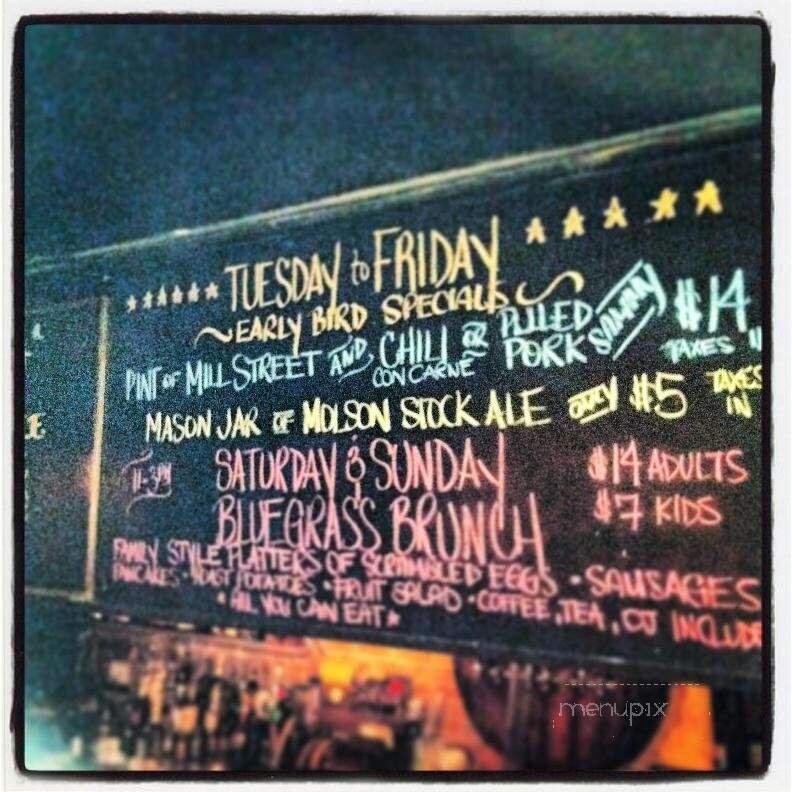 TUESDAY to FRIDAY
~EARLY BIRD SPECIALS~
PINT OF MILL STREET AND CHILI CON CARNE OR PULLED PORK $14 TAXES
MASON JAR OF MOLSON STOCK ALE ONLY $5 TAXES IN
11-3PM SATURDAY & SUNDAY $14 ADULTS
BLUEGRASS BRUNCH $7 KIDS
FAMILY STYLE PLATTERS OF SCRAMBLED EGGS • SAUSAGES
PANCAKES • ROAST POTATOES • FRUIT SALAD • COFFEE, TEA, OJ INCLUDE
* ALL YOU CAN EAT *
menupix